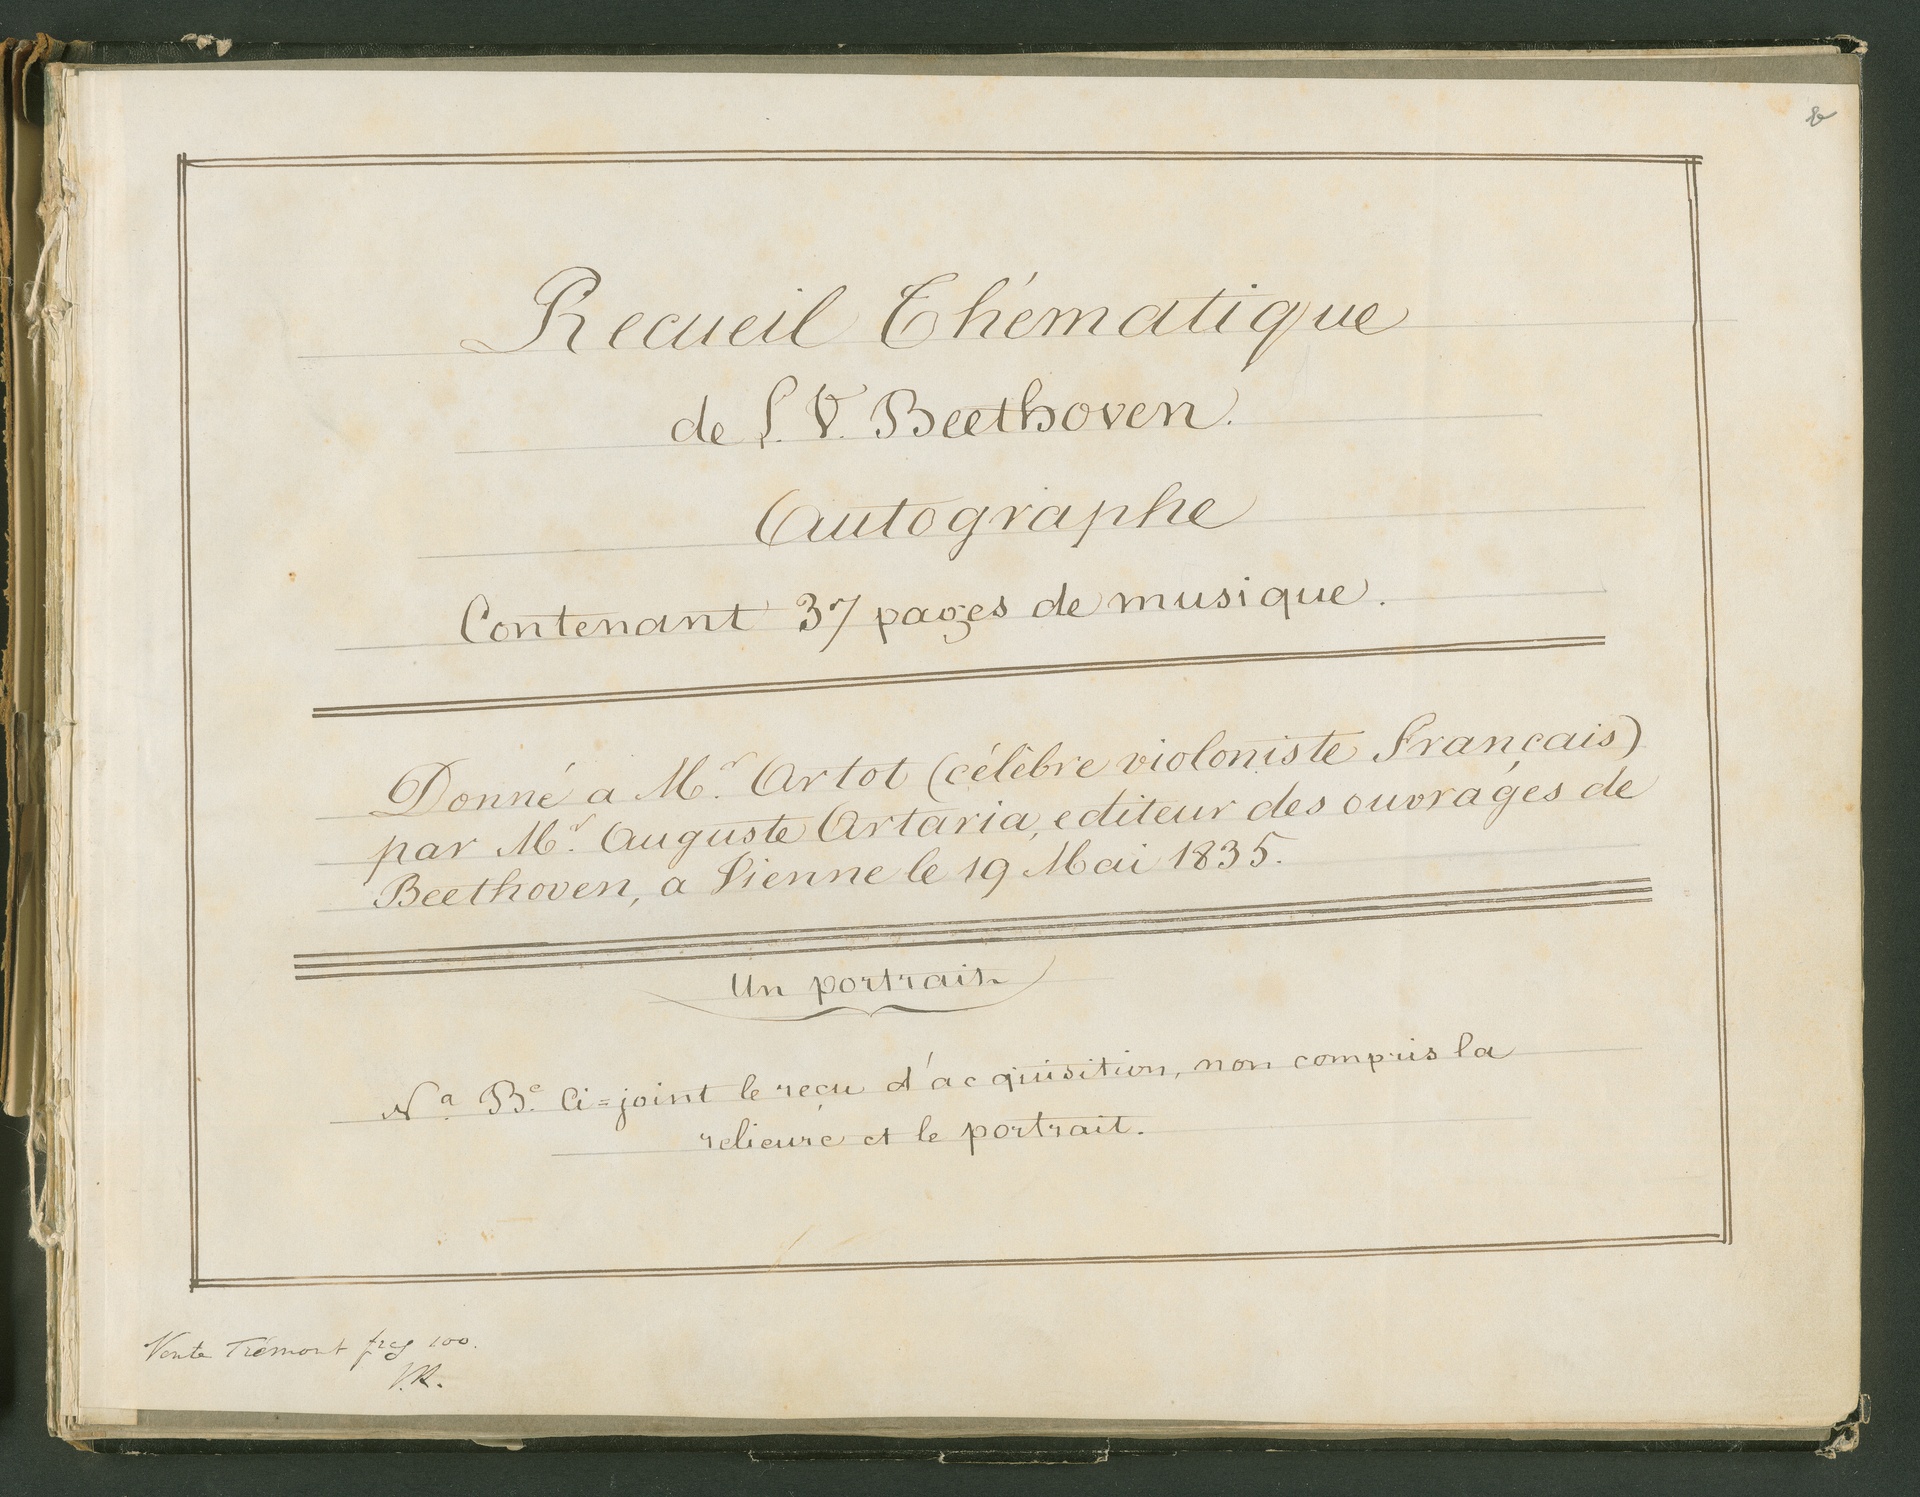 Recueil Thématique
de L. V. Beethoven.
Autographe
Contenant 37 pages de musique.
Donné a Mr. Artot (célèbre violoniste Français)
par Mr. Auguste Artaria, editeur des ouvrages de
Beethoven, a Vienne le 19 Mai 1835.
Un portrait
Na. Be. Ci=joint le reçu d'acquisition, non compris la
relieure et le portrait.
Vente Trémont frcs 100.